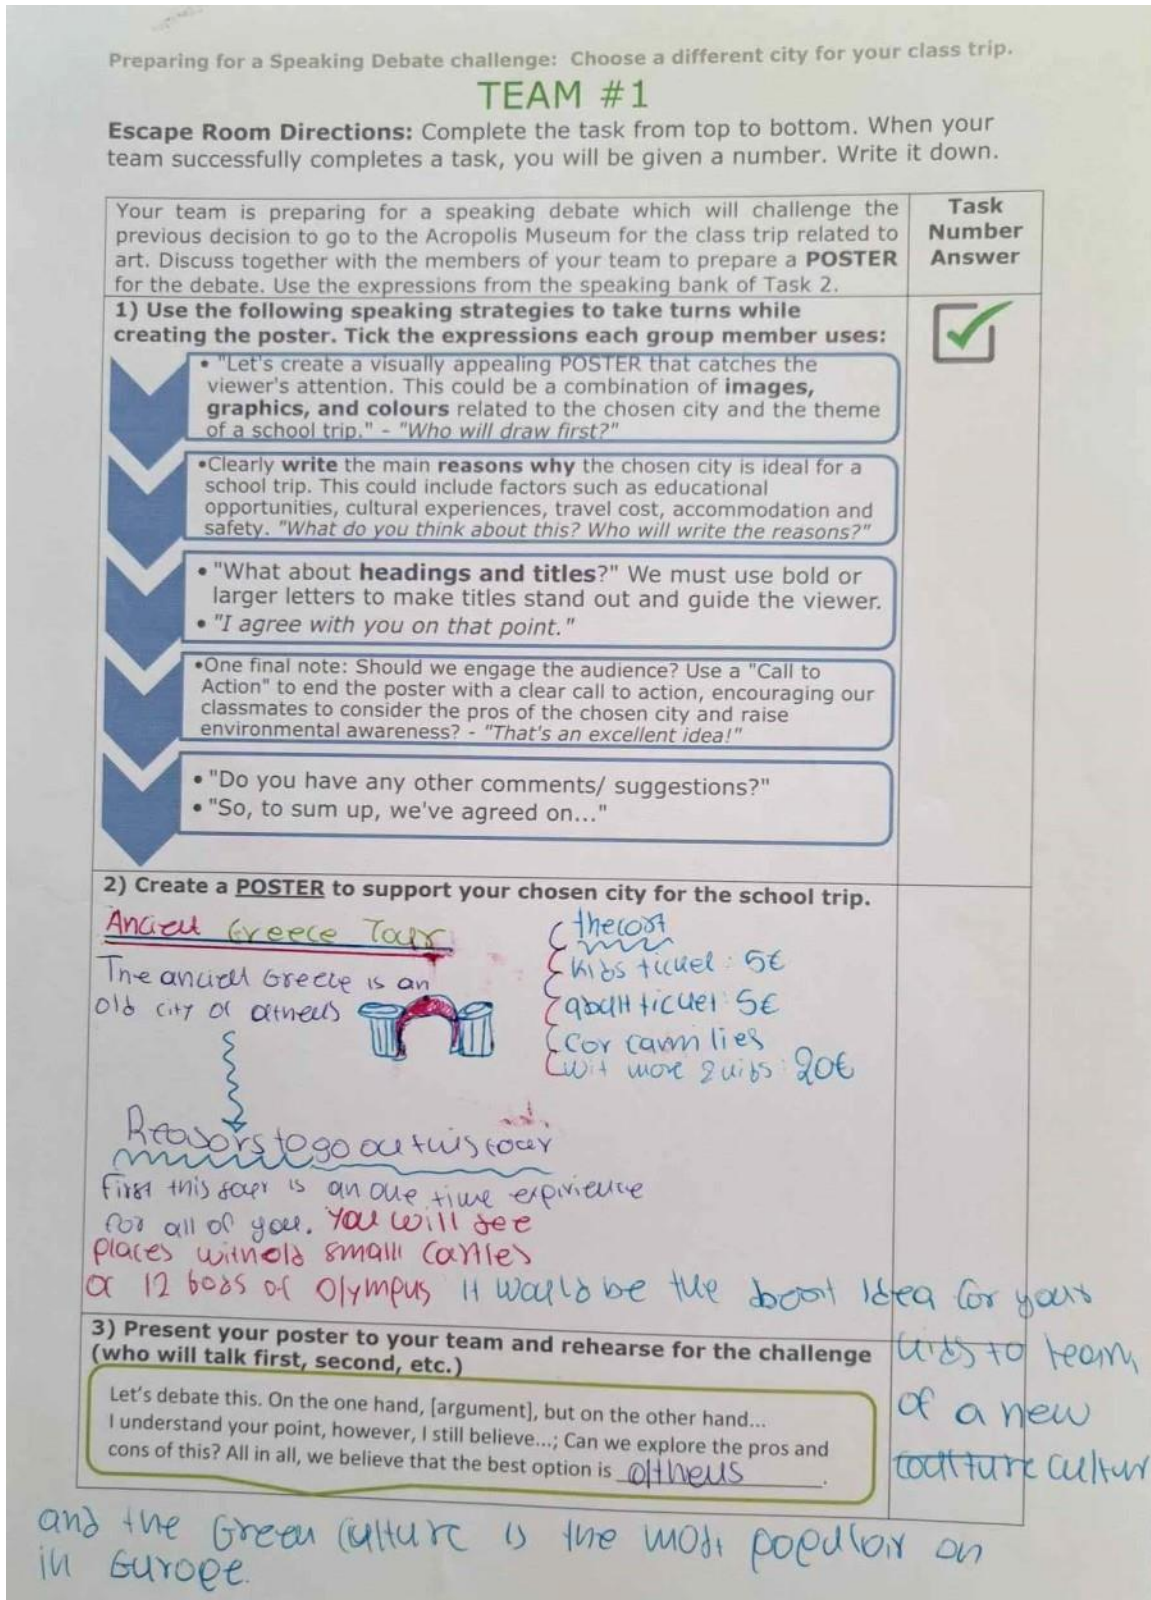 Preparing for a Speaking Debate challenge: Choose a different city for your class trip.
TEAM #1
Escape Room Directions: Complete the task from top to bottom. When your
team successfully completes a task, you will be given a number. Write it down.
Your team is preparing for a speaking debate which will challenge the
previous decision to go to the Acropolis Museum for the class trip related to
art. Discuss together with the members of your team to prepare a POSTER
for the debate. Use the expressions from the speaking bank of Task 2.
Task
Number
Answer
1) Use the following speaking strategies to take turns while
creating the poster. Tick the expressions each group member uses:
• "Let's create a visually appealing POSTER that catches the
viewer's attention. This could be a combination of images,
graphics, and colours related to the chosen city and the theme
of a school trip." - "Who will draw first?"
•Clearly write the main reasons why the chosen city is ideal for a
school trip. This could include factors such as educational
opportunities, cultural experiences, travel cost, accommodation and
safety. "What do you think about this? Who will write the reasons?"
• "What about headings and titles?" We must use bold or
larger letters to make titles stand out and guide the viewer.
• "I agree with you on that point."
•One final note: Should we engage the audience? Use a "Call to
Action" to end the poster with a clear call to action, encouraging our
classmates to consider the pros of the chosen city and raise
environmental awareness? - "That's an excellent idea!"
• "Do you have any other comments/ suggestions?"
• "So, to sum up, we've agreed on..."
2) Create a POSTER to support your chosen city for the school trip.
Ancient Greece Tour
The ancient Greece is an
old city of athens
the cost
kids ticket: 5€
adult ticket: 5€
for families
wit more 2 kids: 20€
Reasons to go on this tour
First this tour is an one time expirience
for all of you. You will see
places with old small castles
of 12 gods of Olympus It would be the best idea for your
kids to learn
of a new
culture
3) Present your poster to your team and rehearse for the challenge
(who will talk first, second, etc.)
Let's debate this. On the one hand, [argument], but on the other hand...
I understand your point, however, I still believe...; Can we explore the pros and
cons of this? All in all, we believe that the best option is athens.
and the Green culture is the most popular on
in Europe.